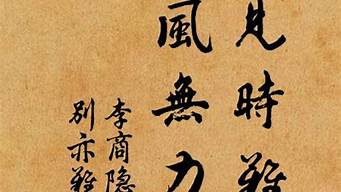 見時難
風無力
李商隐
别亦難